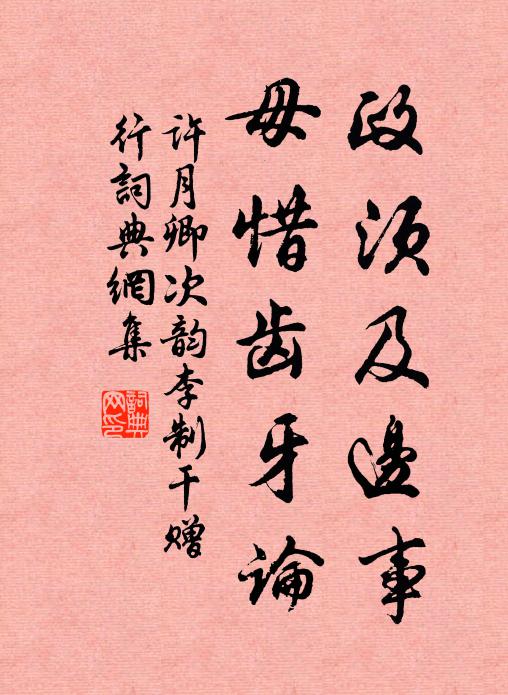 政须及邊事
毋惜齿牙論
许月卿次韵李制干赠
行詞典網集
詞典网印